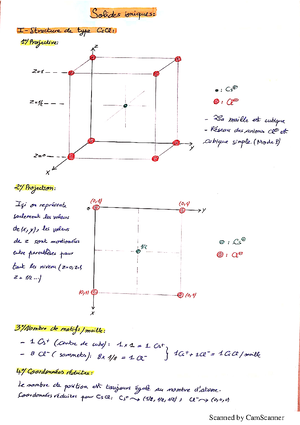 Solides ioniques:
I-Structure de type CsCl:
1°/ Projective:
Z
Z=1
Z=1/2
Z=0
Y
X
: Cs⊕
: Cl⊖
- La maille est cubique
- Réseau des anions Cl⊖ est cubique simple. (Mode P)
2°/ Projection:
Ici on représente
seulement les valeurs
de (x, y), les valeurs
de z sont mentionnées
entre parenthèses pour
tout les niveau (z=0,z=1
z=1/2 ...)
(0,1)
(0,1)
Y
1/2
(0,1)
(0,1)
X
: Cs⊕
: Cl⊖
3°/Nombre de motifs/maille:
- 1 Cs⁺ (centre du cube): 1 x 1 = 1 Cs⁺
- 8 Cl⁻ (sommets): 8 x 1/8 = 1 Cl⁻
1Cs⁺ + 1Cl⁻ = 1 CsCl/maille
4°/ Coordonnées réduites:
Le nombre de position est toujours égale au nombre d'atome.
Coordonnées réduites pour CsCl: Cs⁺ → (1/2, 1/2, 1/2) ; Cl⁻ → (0,0,0)
Scanned by CamScanner